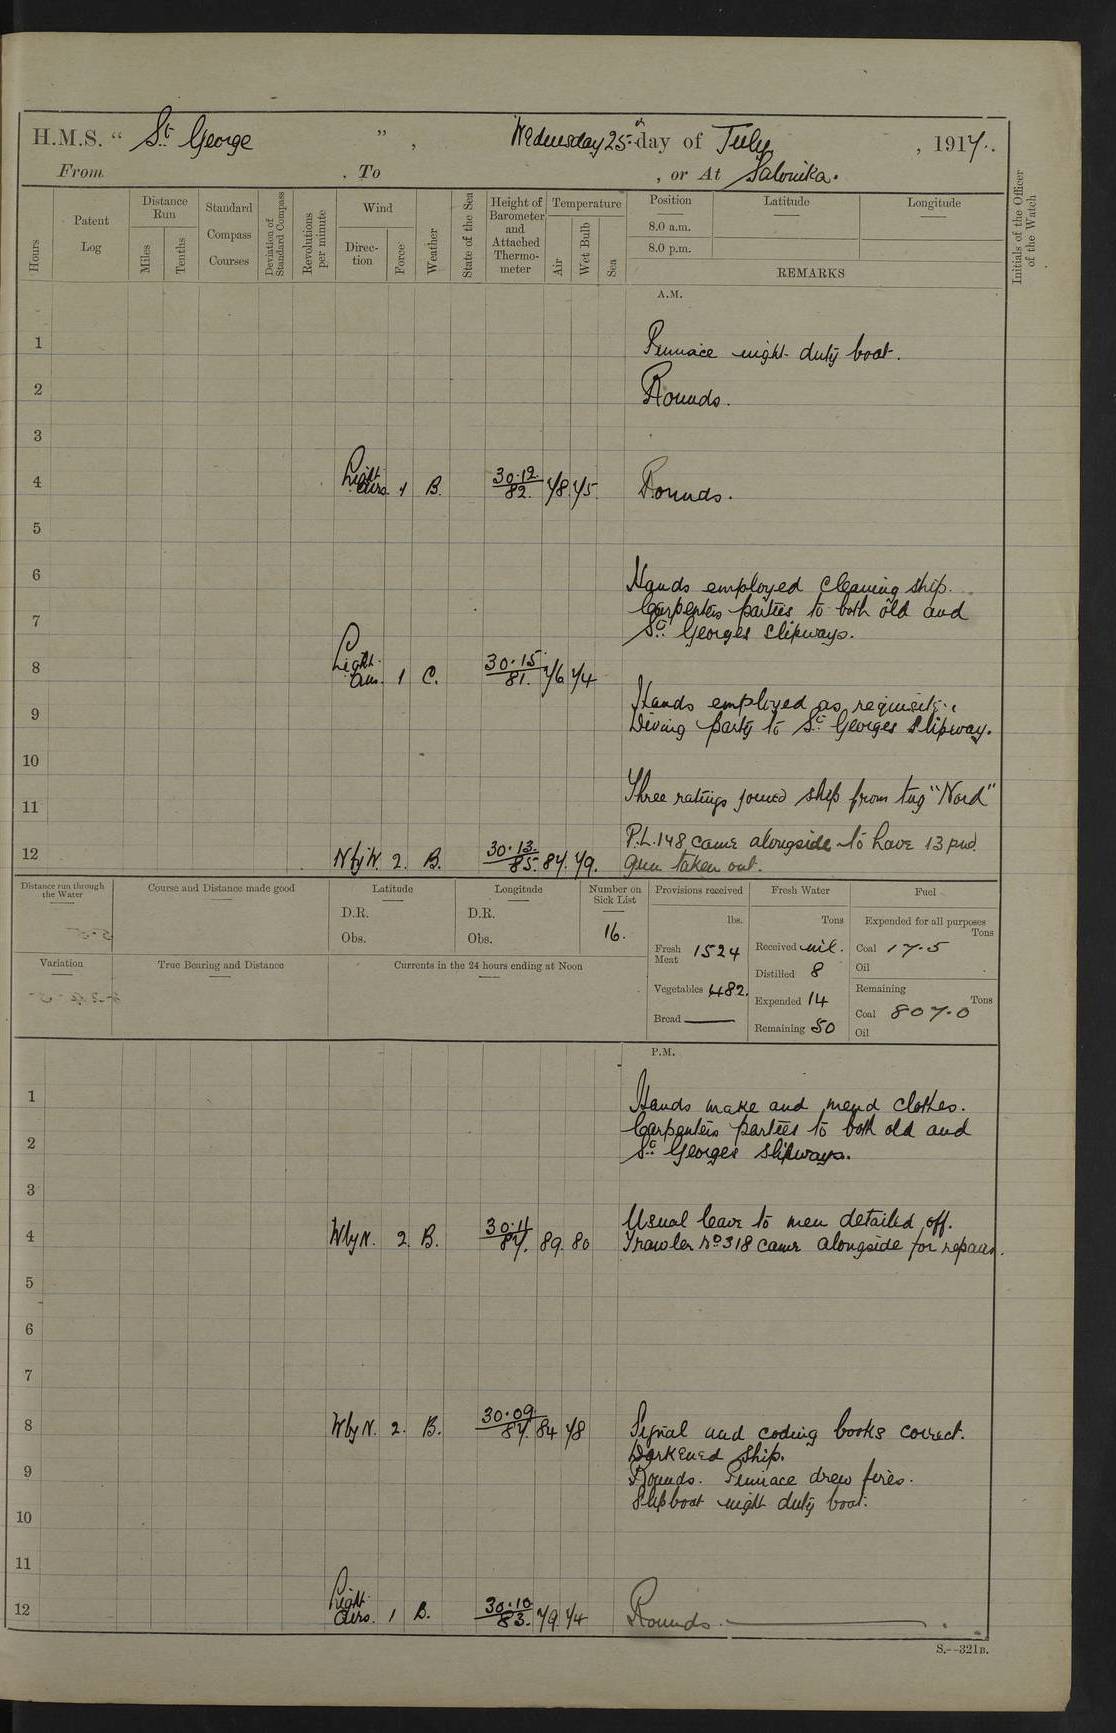 H.M.S. “ St George ”, Wednesday 25th day of July, 1917.
From , To , or At Salonika.
Hours
Patent Log
Distance Run
Miles
Tenths
Standard Compass Courses
Deviation of Standard Compass
Revolutions per minute
Wind
Direc-tion
Force
Weather
State of the Sea
Height of Barometer and Attached Thermo-meter
Temperature
Air
Wet Bulb
Sea
Position
8.0 a.m.
8.0 p.m.
Latitude
Longitude
REMARKS
Initials of the Officer of the Watch
A.M.
1 Pinnace night duty boat.
2 Rounds.
3
4 Light airs 1 B. 30.12./82. 78. 75. Rounds.
5
6 Hands employed cleaning ship.
Carpenters parties to both old and
7 St Georges slipways.
8 Light airs. 1 C. 30.15./81. 76 74
Hands employed as requisite.
9 Diving party to St Georges slipway.
10
11 Three ratings joined ship from tug "Nord"
P.L.148 came alongside to have 13 pd.
12 N by W 2. B. 30.13./85. 87. 79. gun taken out.
Distance run through the Water
Course and Distance made good
Latitude
D.R.
Obs.
Longitude
D.R.
Obs.
Number on Sick List
16.
Provisions received
lbs.
Fresh Meat 1524
Vegetables 482.
Bread ———
Fresh Water
Tons
Received nil.
Distilled 8
Expended 14
Remaining 50
Fuel
Expended for all purposes
Tons
Coal 17.5
Oil
Remaining
Tons
Coal 807.0
Oil
Variation
True Bearing and Distance
Currents in the 24 hours ending at Noon
P.M.
1 Hands make and mend clothes.
Carpenters parties to both old and
2 St Georges slipways.
3
Usual leave to men detailed off.
4 W by N. 2. B. 30.11/87. 89. 80 Trawler No 318 came alongside for repairs.
5
6
7
8 W by N. 2. B. 30.09/87. 84 78 Signal and coding books correct.
Darkened ship.
9 Rounds. Pinnace drew fires.
Slipboat night duty boat.
10
11
12 Light airs. 1 B. 30.10/83. 79. 74 Rounds.
S.—321B.